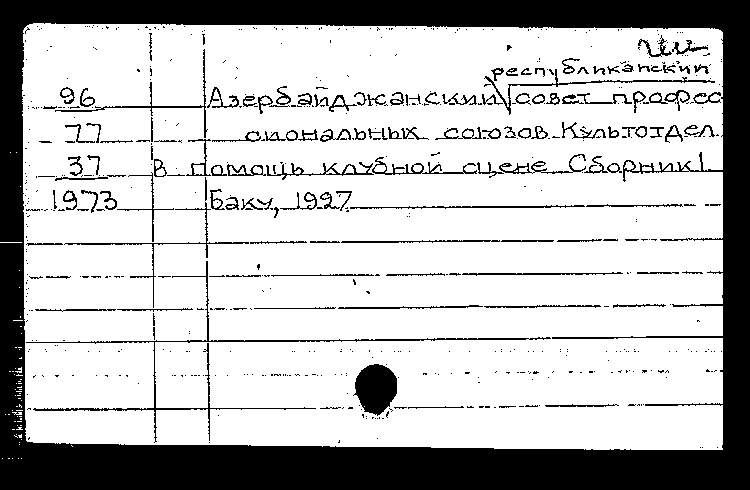 республиканский
96 Азербайджанский √ совет профес
77 сиональных союзов Культотдел
37 В помощь клубной сцене Сборник 1
1973 Баку, 1927